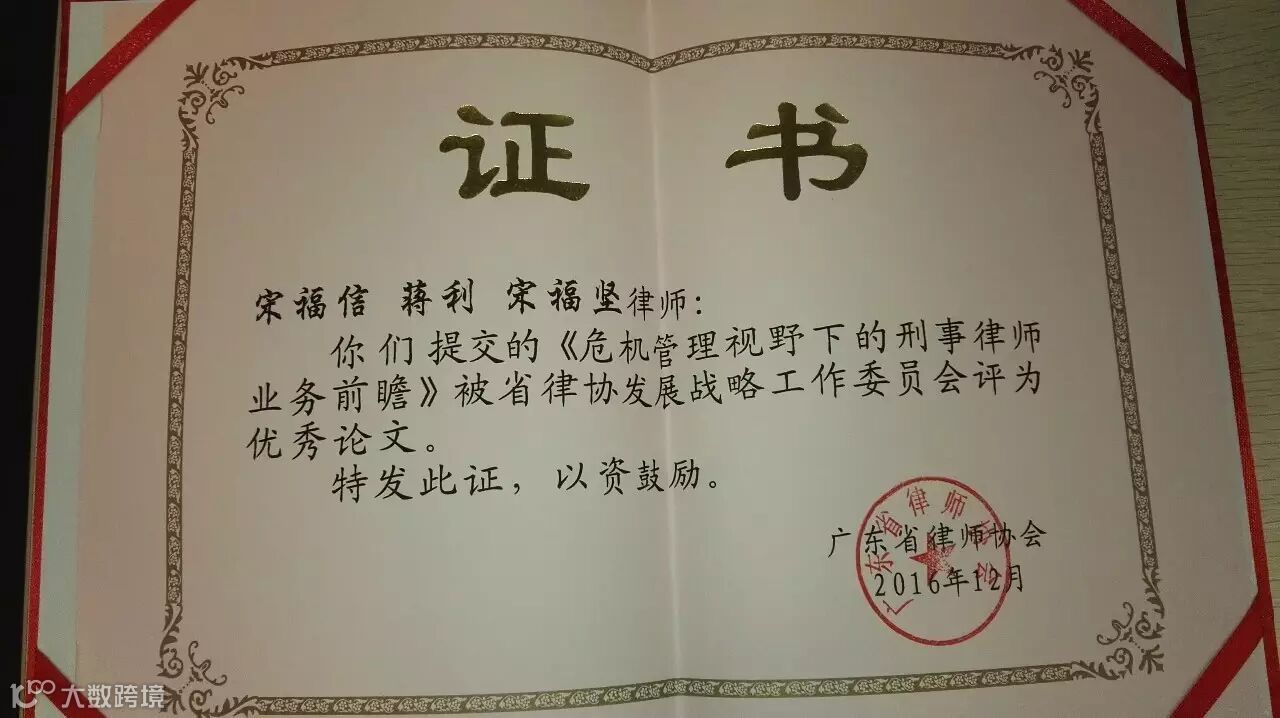 证 书
宋福信 蒋利 宋福坚律师：
你们提交的《危机管理视野下的刑事律师
业务前瞻》被省律协发展战略工作委员会评为
优秀论文。
特发此证，以资鼓励。
广东省律师协会
2016年12月
广东省律师协会
大数跨境